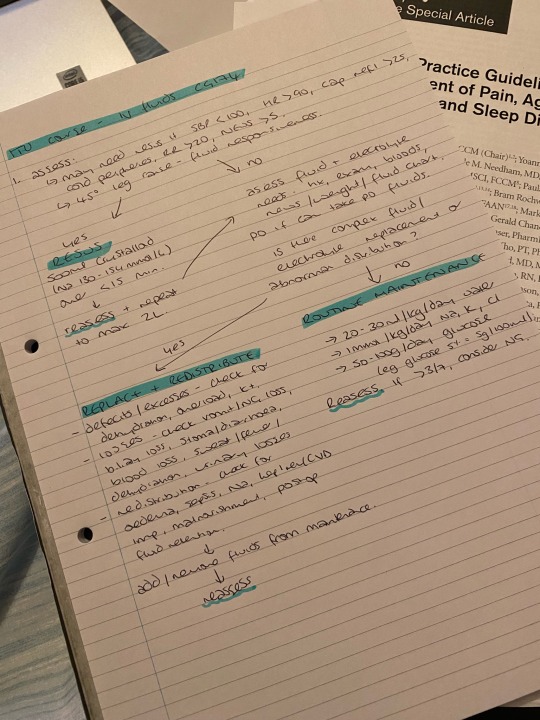 ITU course - IV fluids CG174
1. assess:
↳ may need resus if SBP <100, HR >90, cap refil >2s,
cold peripheries, RR >20, NEWS >5.
↳ 45° leg raise - fluid responsiveness.
yes
no
RESUS
500ml crystalloid
(Na 130-154 mmol/L)
over <15 min.
reassess + repeat
to max 2L.
assess fluid + electrolyte
needs: hx, exam, bloods,
news/weight/fluid chart.
PO if can take PO fluids.
is there complex fluid/
electrolyte replacement or
abnormal distribution?
yes
no
REPLACE + REDISTRIBUTE
- defecits/excesses - check for
dehydration, overload, K+,
losses - check vomit/NG loss,
biliary loss, stoma/diarrhoea,
blood loss, sweat/fever/
dehydration, urinary losses
- redistribution - check for
oedema, sepsis, Na, hep/ren/CVD
imp, malnourishment, postop
fluid retention.
add/remove fluids from maintenance.
reassess
ROUTINE MAINTENANCE
→ 20-30ml/kg/day water
→ 1mmol/kg/day Na, K, Cl
→ 50-100g/day glucose
(eg glucose 5% = 5g/100ml)
Reasess. If >3/7, consider NG.
e Special Article
Practice Guideli
ent of Pain, Ag
and Sleep Di
CCM (Chair)
e M. Needham, MD,
MSCI, FCCM
Bram Rochw
FAAN
Mark
Gerald Chan
ser, Pharm
Tho, PT, Ph